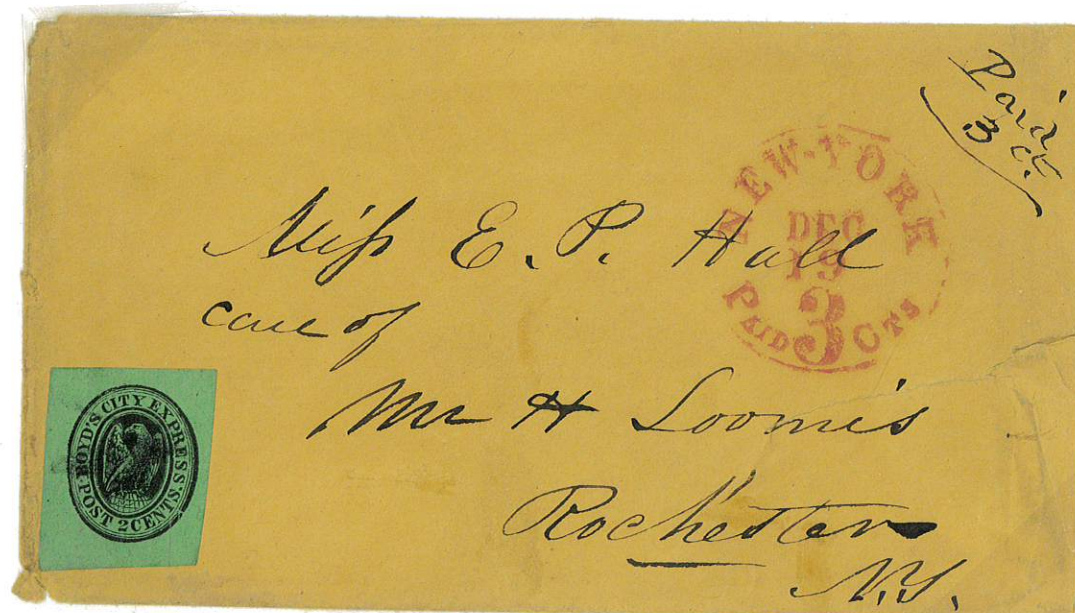 Paid
3 ct.
NEW-YORK
DEC
19
PAID 3 CTS
Miss E. P. Hall
care of
Mr H Loomis
Rochester
N.Y.
BOYD'S CITY EXPRESS
POST 2 CENTS.